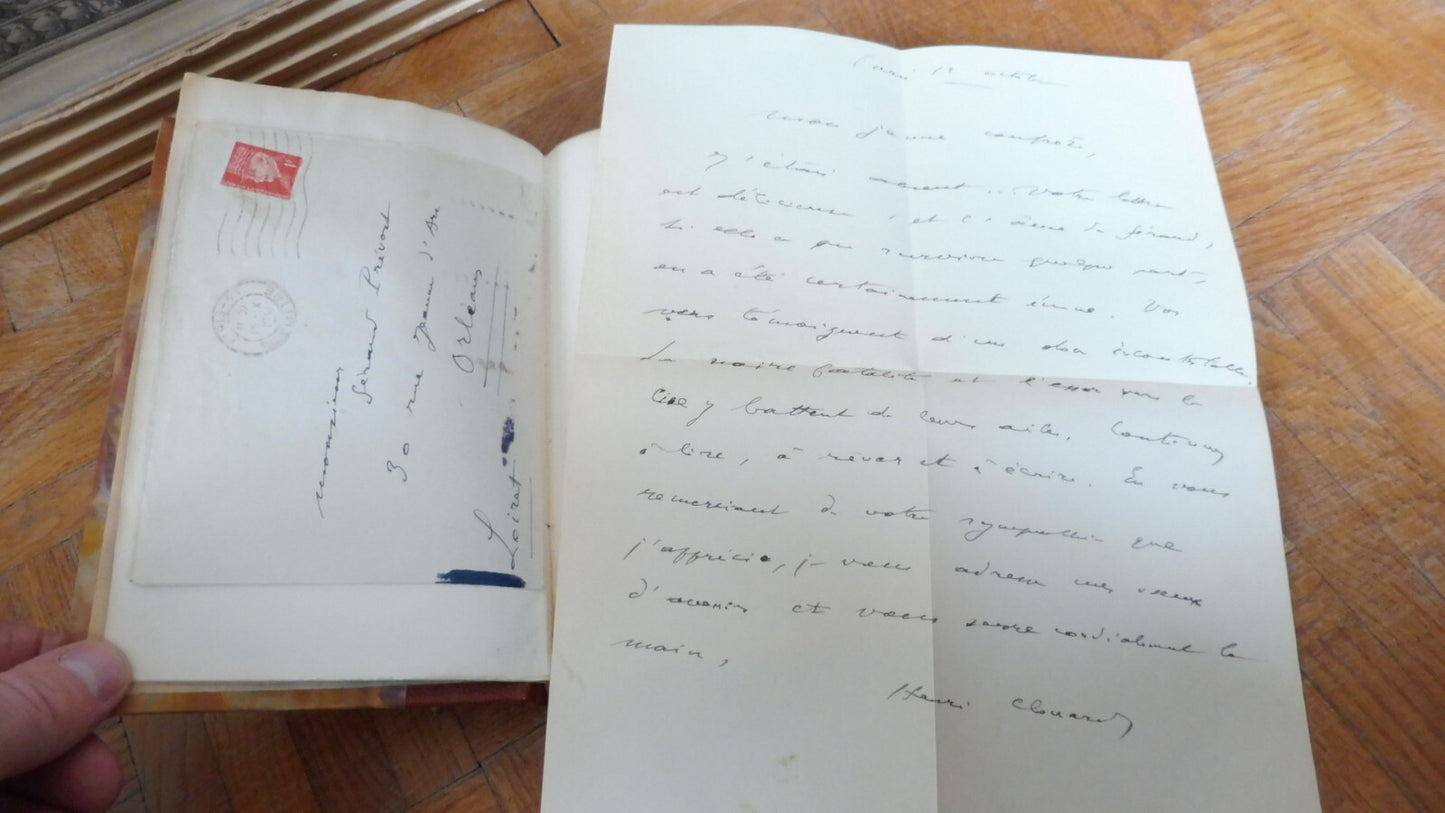 Monsieur
Gérard Prévost
30 rue Jeanne d'Arc
Orléans
Loiret
Paris 1er octobre
Mon jeune confrère,
J'étais absent.. Votre lettre
est délicieuse, et l'âme de Gérard,
si elle a pu survivre quelque part,
en a été certainement émue. Vos
vers témoignent d'un don incontestable.
La noire fatalité et l'essor vers le
Ciel y battent de leurs ailes. Continuez
à lire, à rêver et à écrire. En vous
remerciant de votre sympathie que
j'apprécie, je vous adresse mes vœux
d'avenir et vous serre cordialement la
main,
Henri Clouard